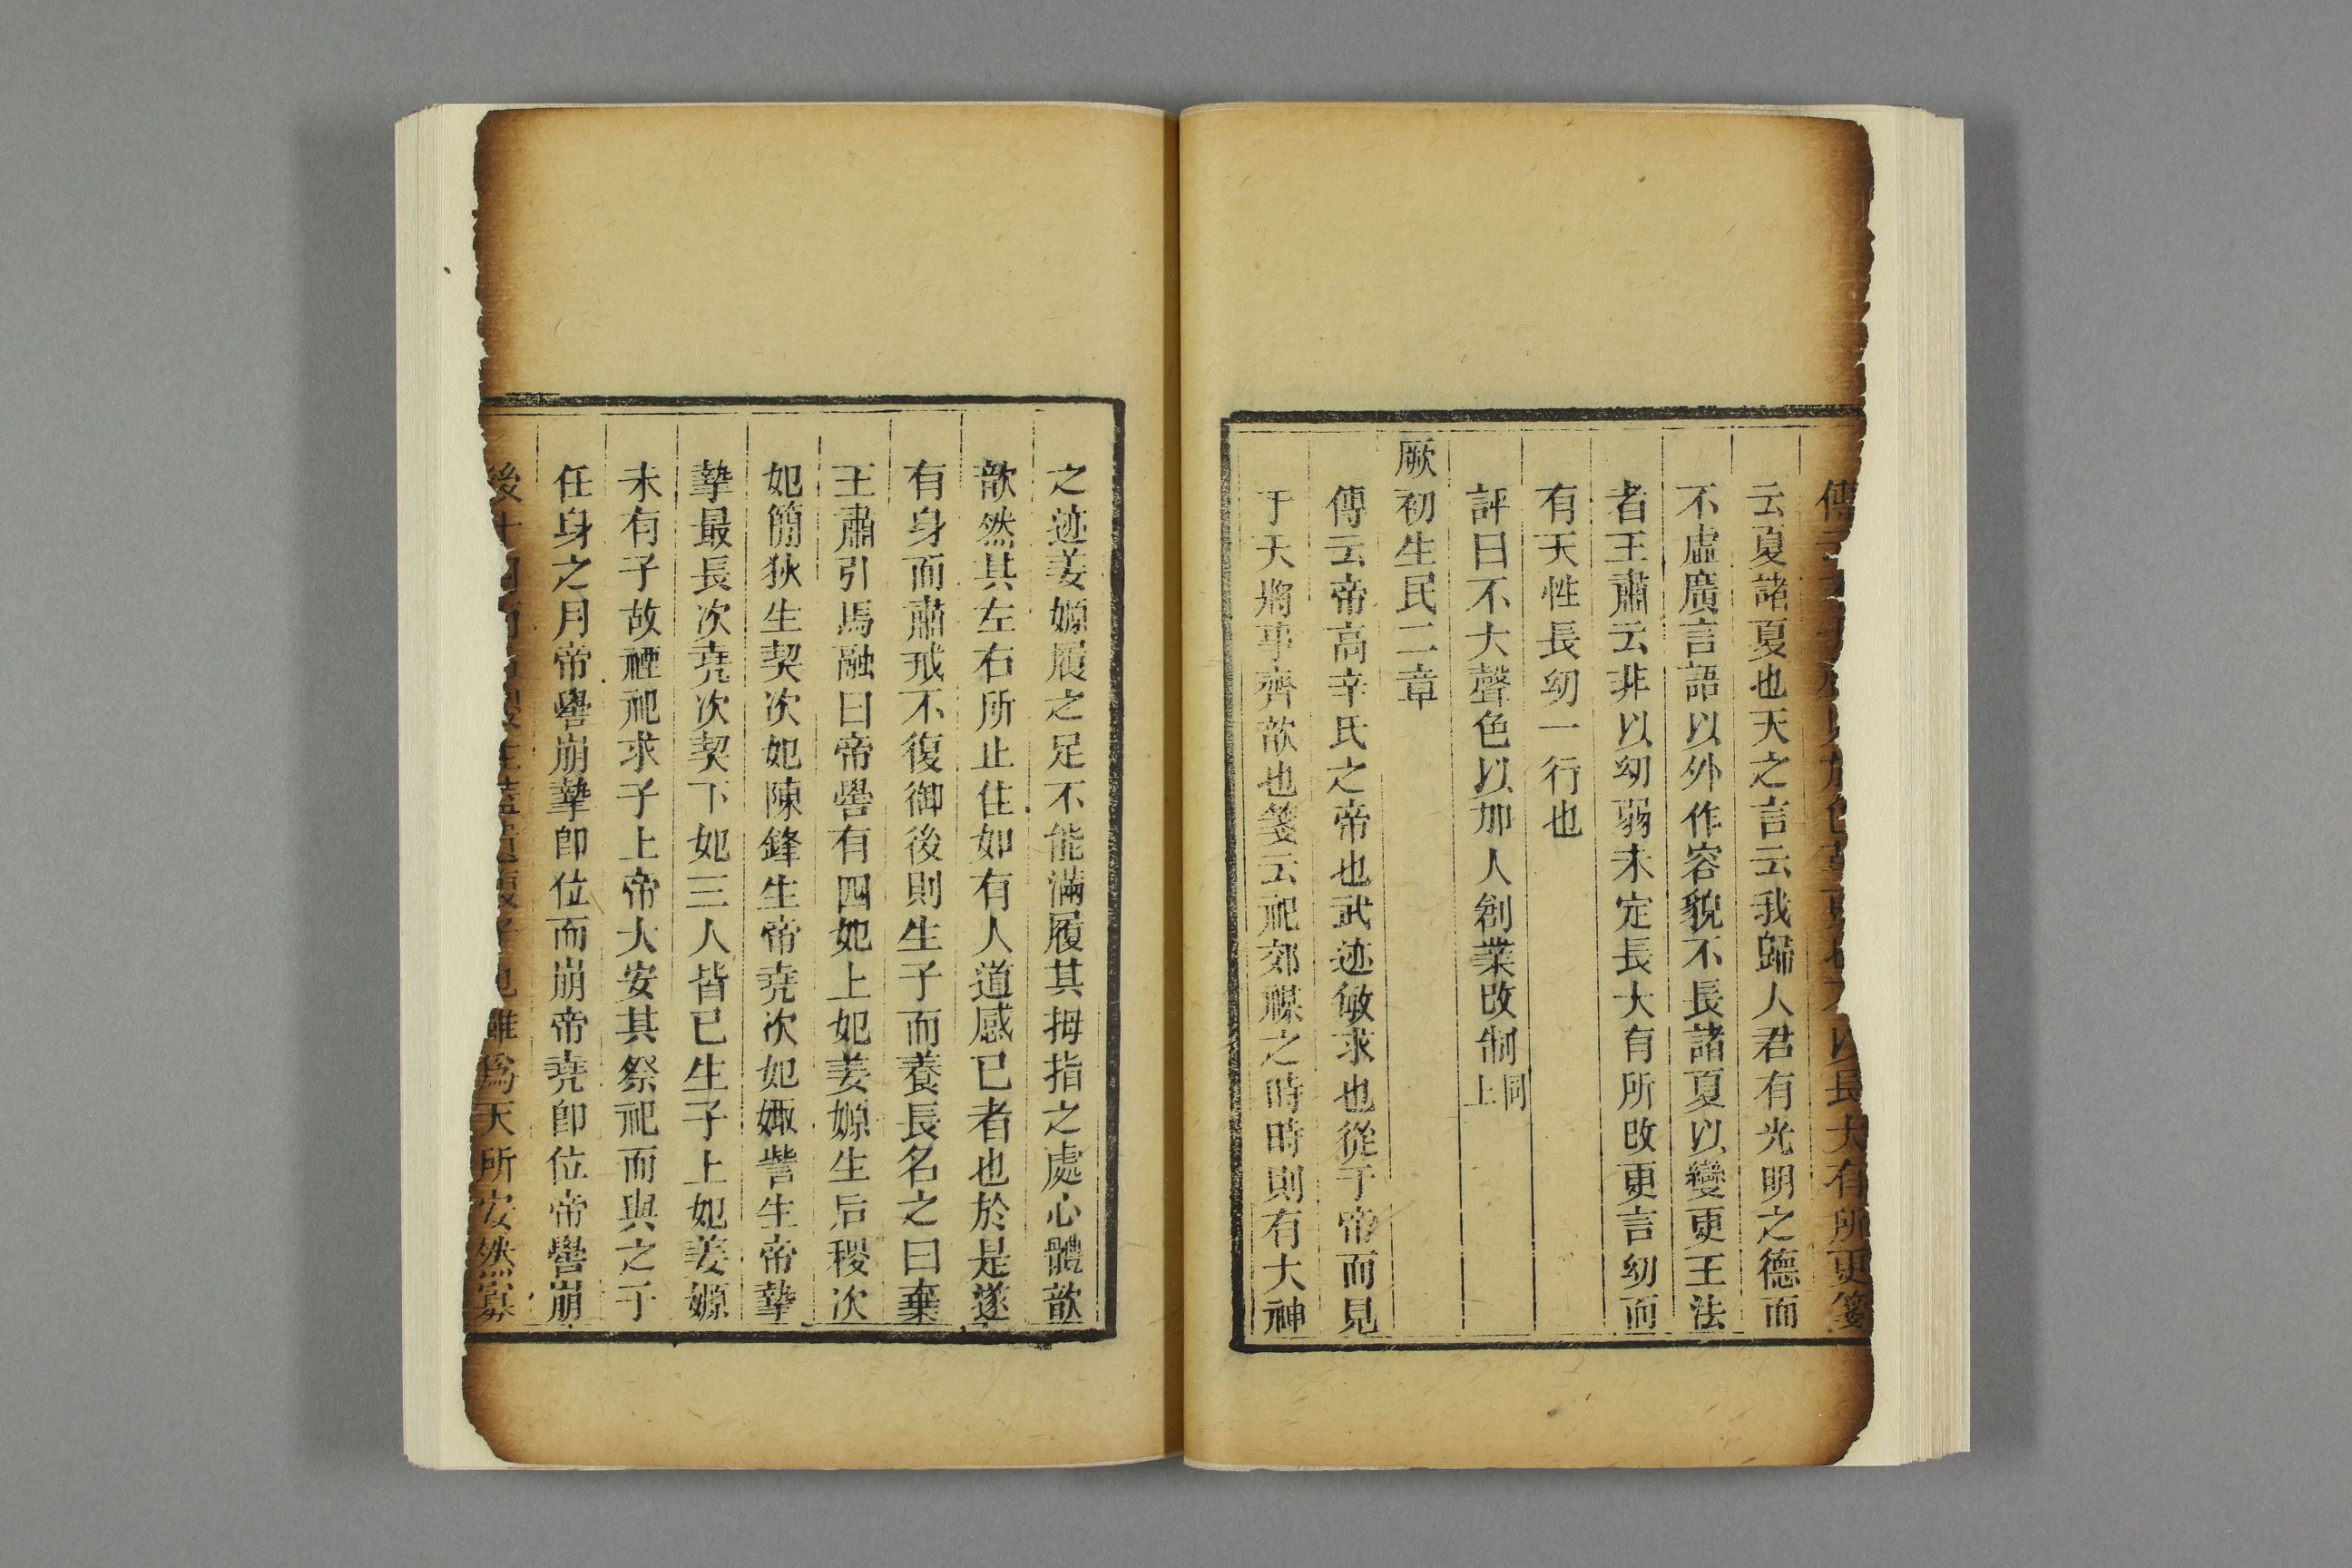 傳云以於色革更也不以長大有所更箋
云夏諸夏也天之言云我歸人君有光明之德而
不虛廣言語以外作容貌不長諸夏以變更王法
者王肅云非以幼弱未定長大有所改更言幼而
有天性長幼一行也
評曰不大聲色以加人創業改制同上
厥初生民二章
傳云帝高辛氏之帝也武迹敏求也從于帝而見
于天將事齊歆也箋云祀郊禖之時時則有大神
之迹姜嫄履之足不能滿履其拇指之處心體歆
歆然其左右所止住如有人道感已者也於是遂
有身而肅戒不復御後則生子而養長名之曰棄
王肅引馬融曰帝嚳有四妃上妃姜嫄生后稷次
妃簡狄生契次妃陳鋒生帝堯次妃娵訾生帝摯
摯最長次堯次契下妃三人皆已生子上妃姜嫄
未有子故禋祀求子上帝大安其祭祀而與之子
任身之月帝嚳崩摯即位而崩帝堯即位帝嚳崩
後十月而后稷生蓋遺腹子也雖為天所安然寡